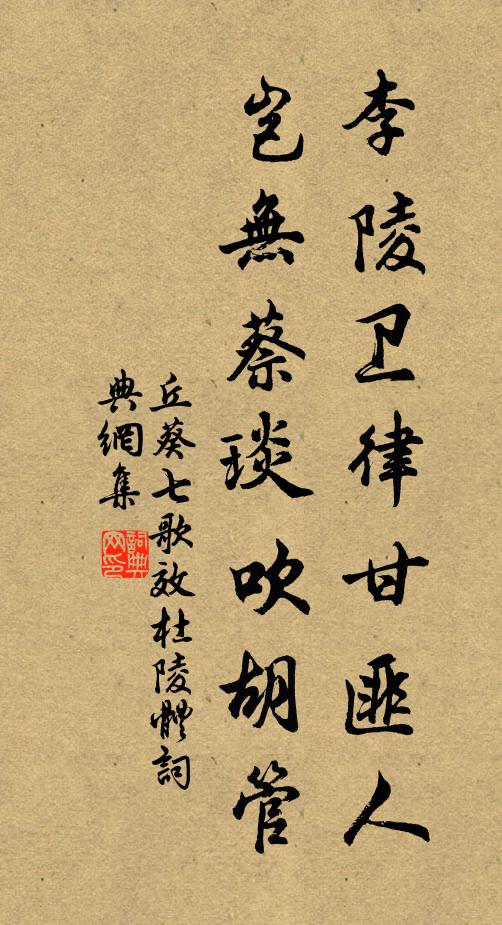 李陵卫律甘匪人
岂無蔡琰吹胡管
丘葵七歌效杜陵體詞
典網集
詞典网印